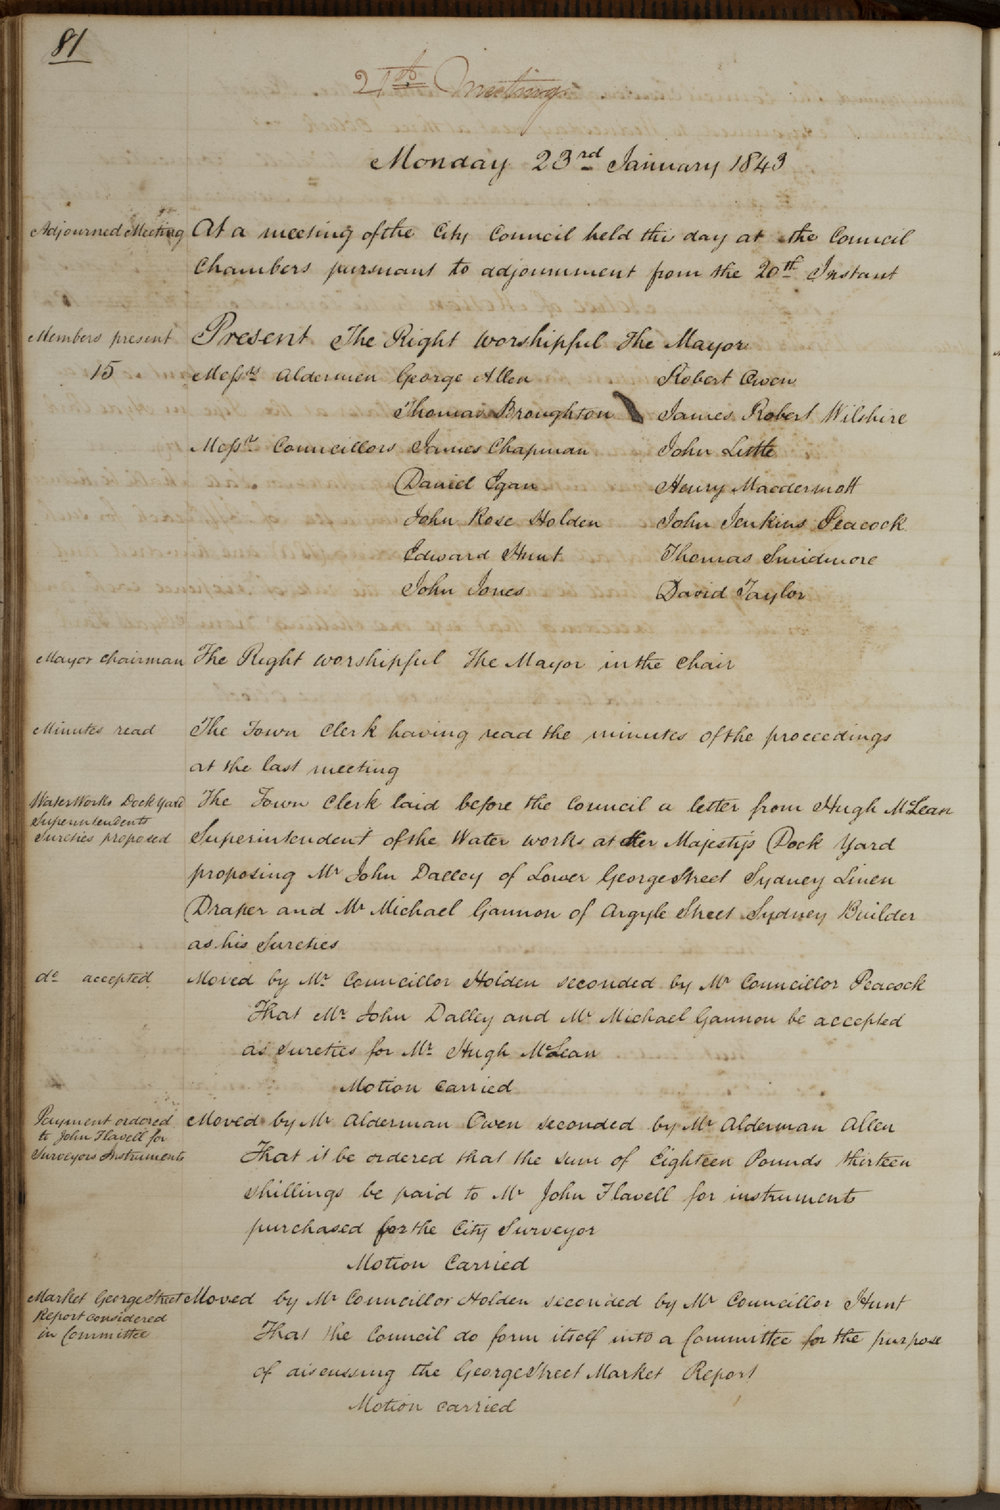 81
21st Meeting
Monday 23rd January 1843
Adjourned Meeting At a meeting of the City Council held this day at the Council
Chambers pursuant to adjournment from the 20th Instant
Members present Present The Right Worshipful The Mayor
15 Messrs Aldermen George Allen Robert Owen
Thomas Broughton James Robert Wilshire
Messrs Councillors James Chapman John Little
Daniel Egan Henry Macdermott
John Rose Holden John Jenkins Peacock
Edward Hunt Thomas Smidmore
John Jones David Taylor
Mayor Chairman The Right Worshipful The Mayor in the Chair
Minutes read The Town Clerk having read the minutes of the proceedings
at the last meeting
Water Works Dock Yard The Town Clerk laid before the Council a letter from Hugh McLean
Superintendents
Sureties proposed Superintendent of the Water works at Her Majesty's Dock Yard
proposing Mr John Dalley of Lower George Street Sydney Linen
Draper and Mr Michael Gannon of Argyle Street Sydney Builder
as his Sureties
do accepted Moved by Mr Councillor Holden seconded by Mr Councillor Peacock
That Mr John Dalley and Mr Michael Gannon be accepted
as sureties for Mr Hugh McLean
Motion carried
Payment ordered Moved by Mr Alderman Owen seconded by Mr Alderman Allen
to John Flavell for
Surveyors Instruments That it be ordered that the sum of Eighteen Pounds thirteen
shillings be paid to Mr John Flavell for instruments
purchased for the City Surveyor
Motion Carried
Market George Street Moved by Mr Councillor Holden seconded by Mr Councillor Hunt
Report considered
in Committee That the Council do form itself into a Committee for the purpose
of discussing the George Street Market Report
Motion carried